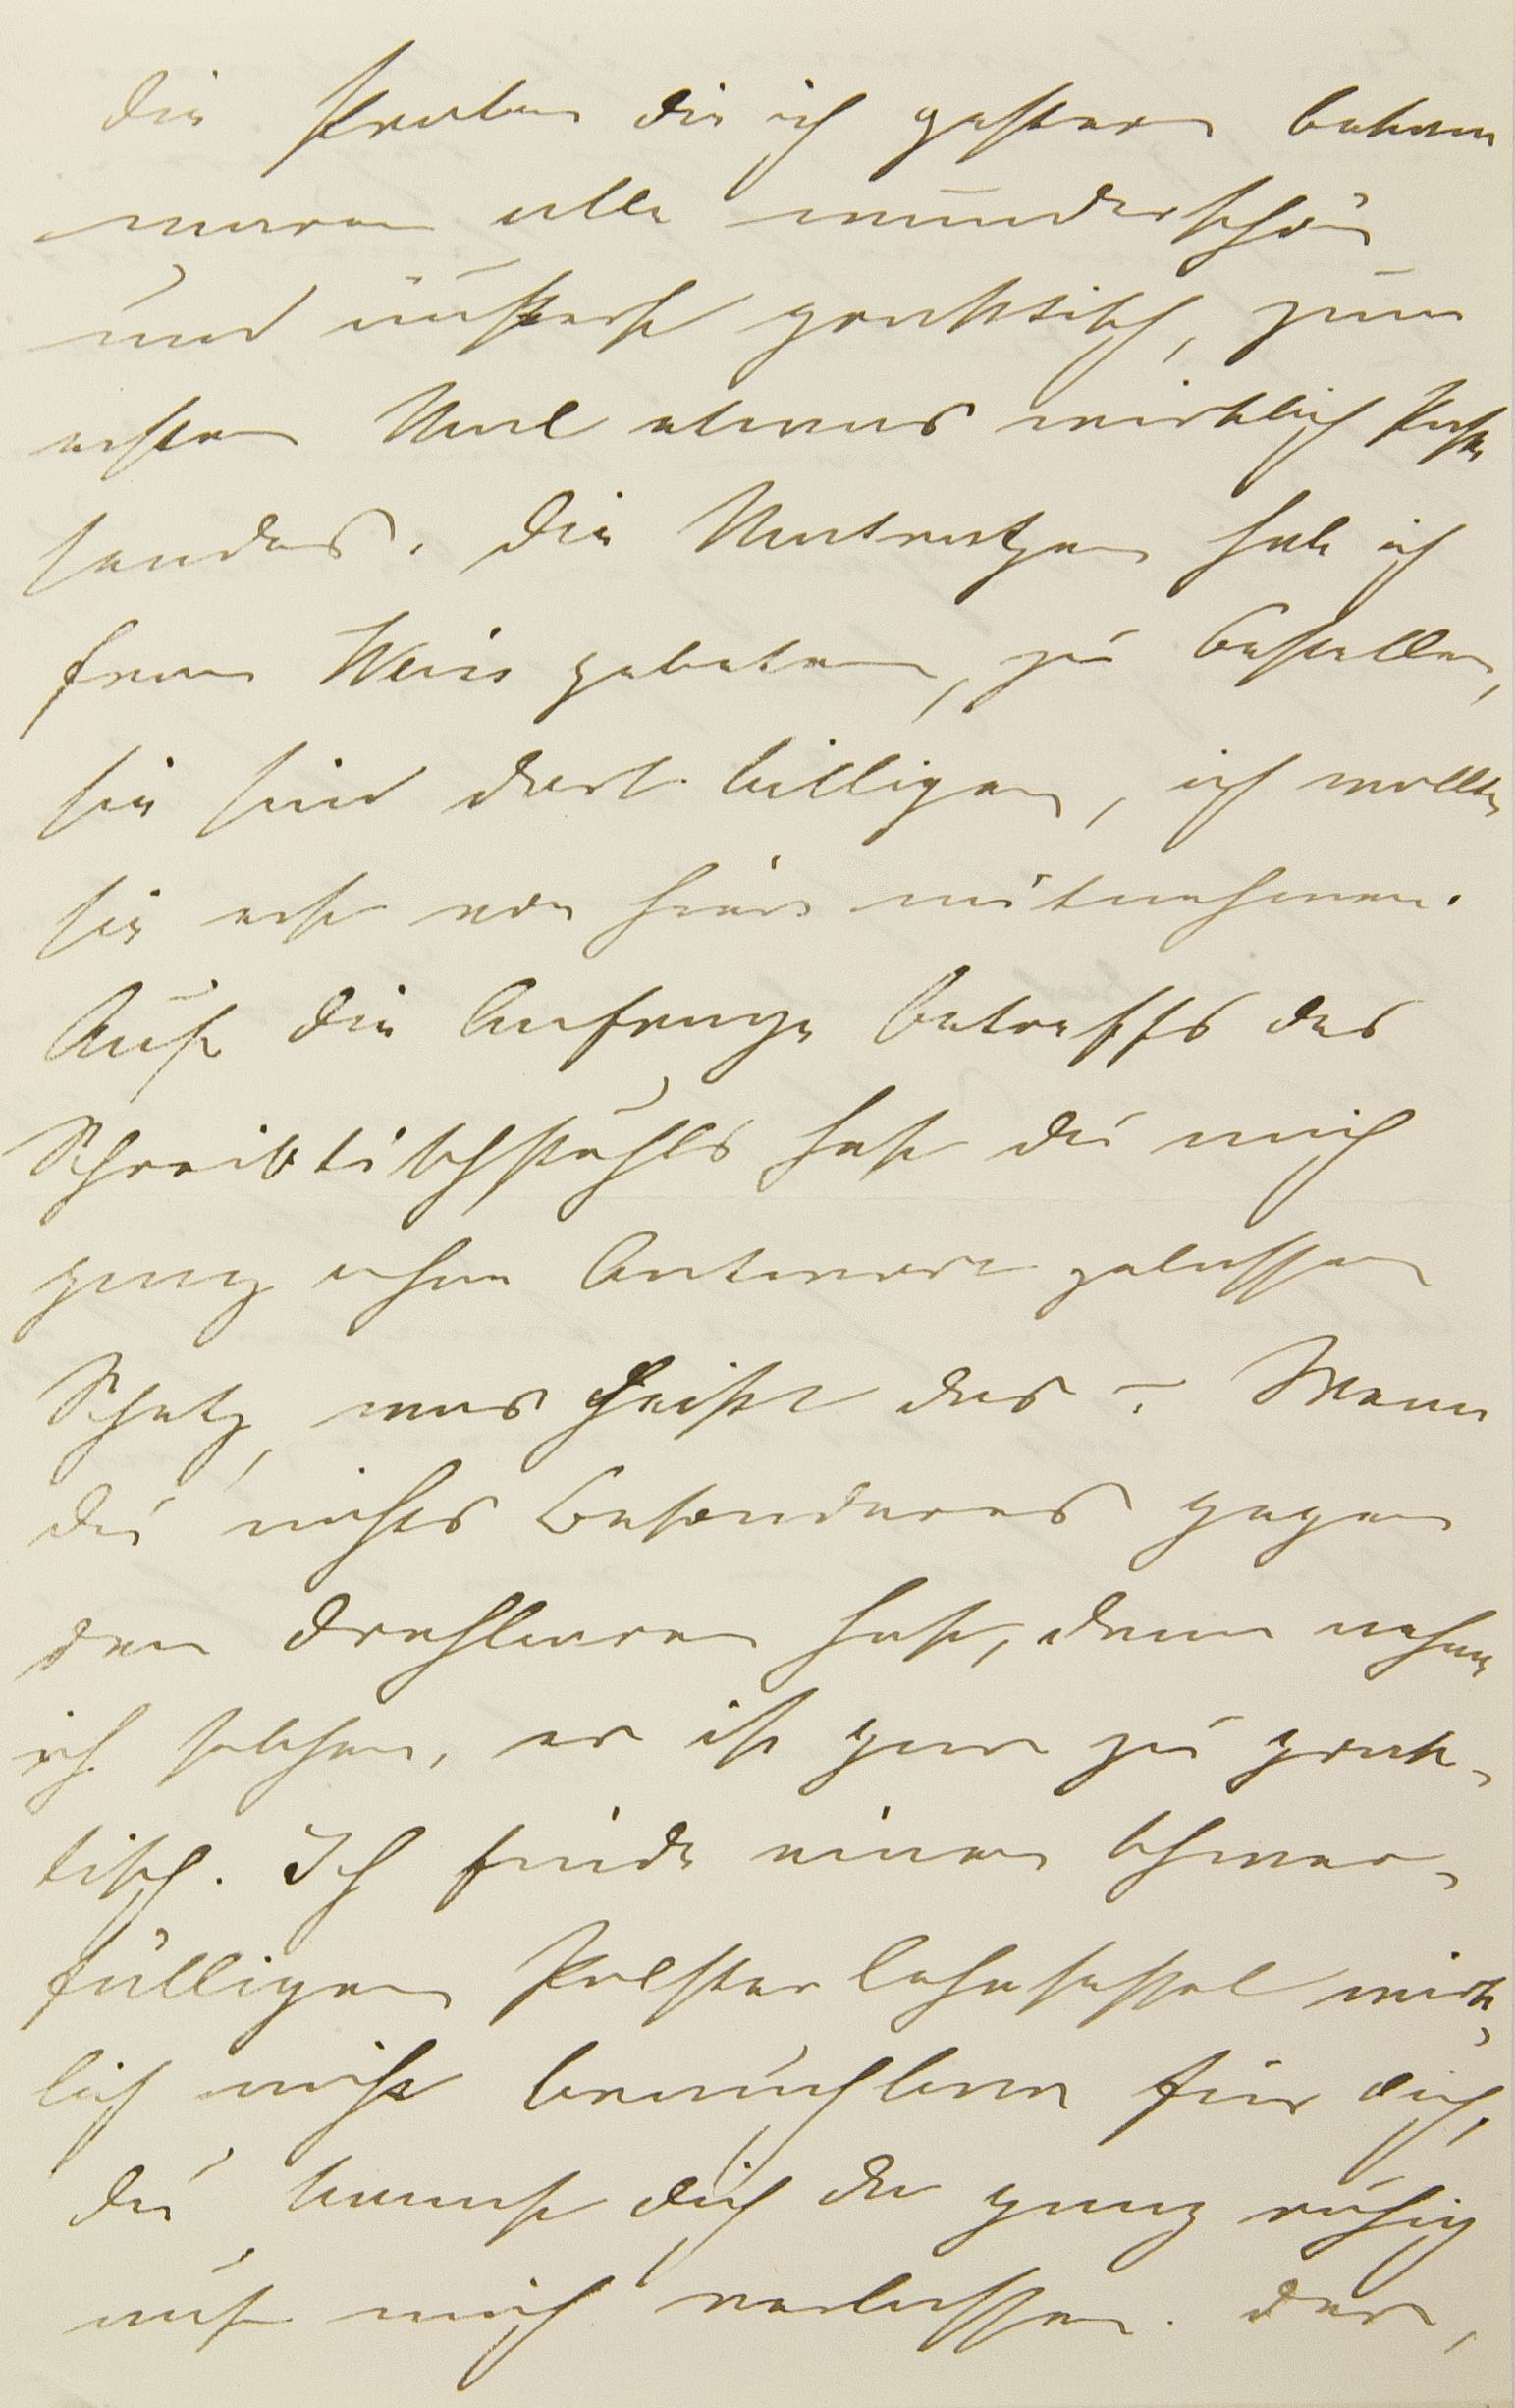 Die Proben die ich gestern bekam
waren alle wunderschön
und äußerst praktisch, zum
ersten Mal etwas wirklich Pas-
sendes. Die Matratzen hab ich
Frau Weiss gebeten, zu bestellen,
sie sind dort billiger, ich wollte
sie erst von hier mitnehmen.
Auf die Anfrage betreffs des
Schreibtischstuhls hast du mich
ganz ohne Antwort gelassen
Schatz, was heißt das? Wenn
du nichts Besonderes gegen
den drehbaren hast, dann nehme
ich solchen, er ist gar zu prak-
tisch. Ich finde einen schwer-
fälligen Polsterlehnsessel wirk-
lich nicht brauchbar für dich,
du kannst dich da ganz ruhig
auf mich verlassen. Der,